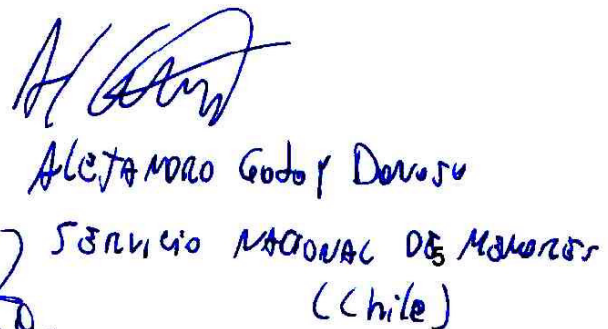 Alejandro Godoy Donoso
SERVICIO NACIONAL DE MENORES
5
(Chile)